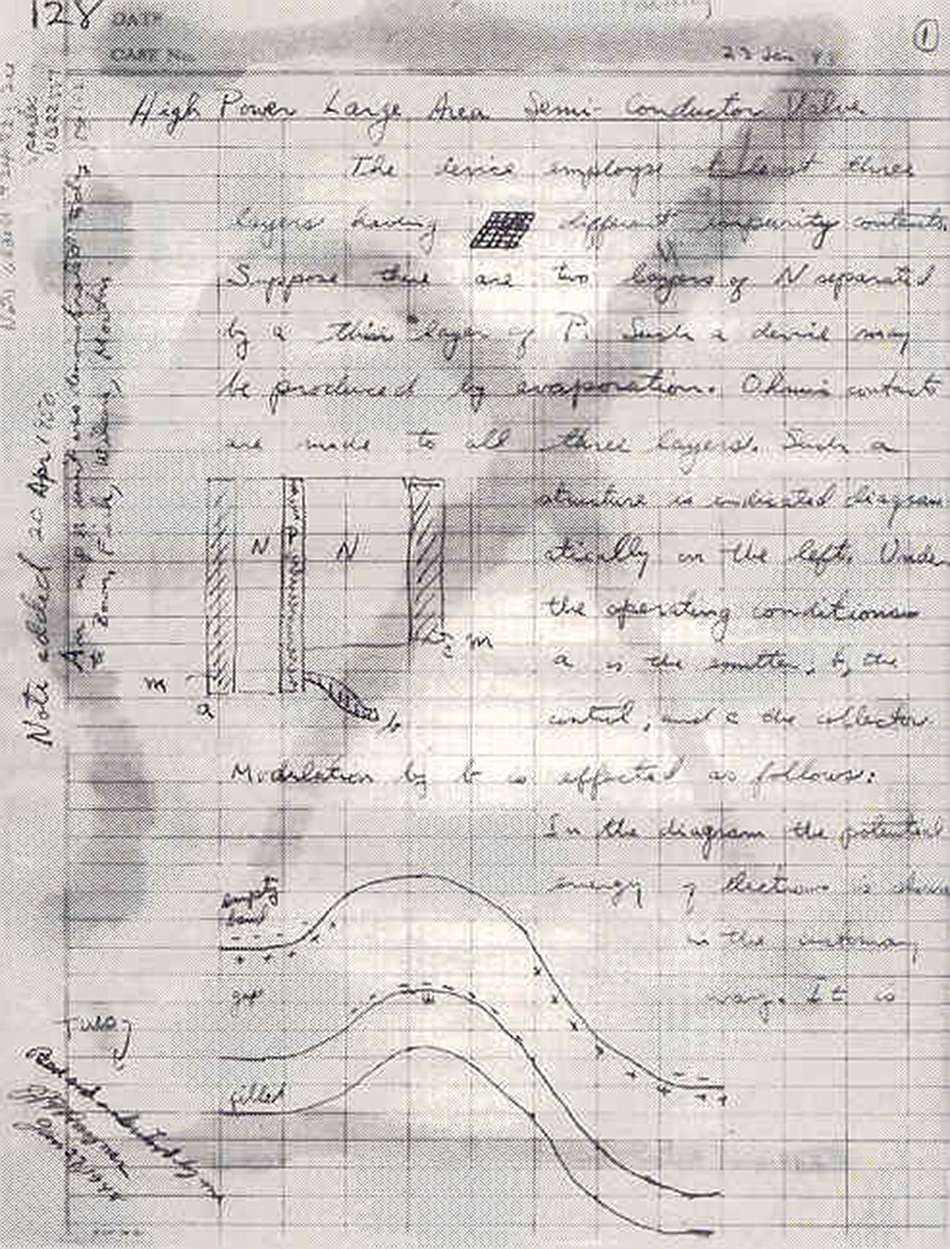 128
DATE
CASE No.
23 Jan 48
1
High Power Large Area Semi-Conductor Valve
The device employs at least three
layers having different impurity contents.
Suppose there are two layers of N separated
by a thin layer of P. Such a device may
be produced by evaporation. Ohmic contacts
are made to all three layers. Such a
structure is indicated diagram-
atically on the left. Under
the operating conditions
a is the emitter, b, the
control, and c the collector
N P N
m
c m
a
b
Modulation by b is effected as follows:
In the diagram the potential
energy of electrons is shown
in the customary
way. It is
empty
band
gap
filled
Read and understood by me
Note added 20 Apr 1950.